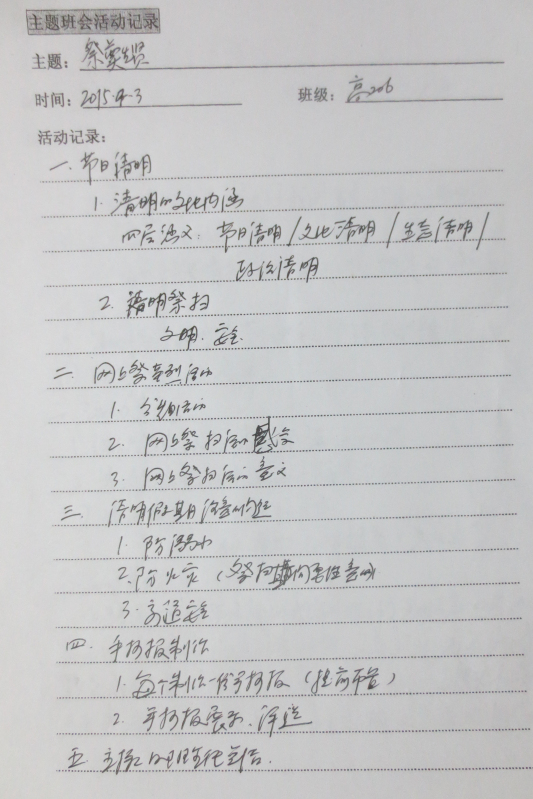 主题班会活动记录
主题：祭奠先贤
时间：2015.4.3 班级：高206
活动记录：
一、节日清明
1. 清明的文化内涵
四层涵义：节日清明/文化清明/生态清明/
政治清明
2. 清明祭扫
文明、安全
二、网上祭英烈活动
1. 活动
2. 网上祭扫活动
3. 网上祭扫活动意义
三、清明假期注意内容
1. 防溺水
2. 防火灾（祭扫
3. 交通安全
四、手抄报制作
1. 每个制作一份手抄报（提前布置）
2. 手抄报展示、评选
五、主任